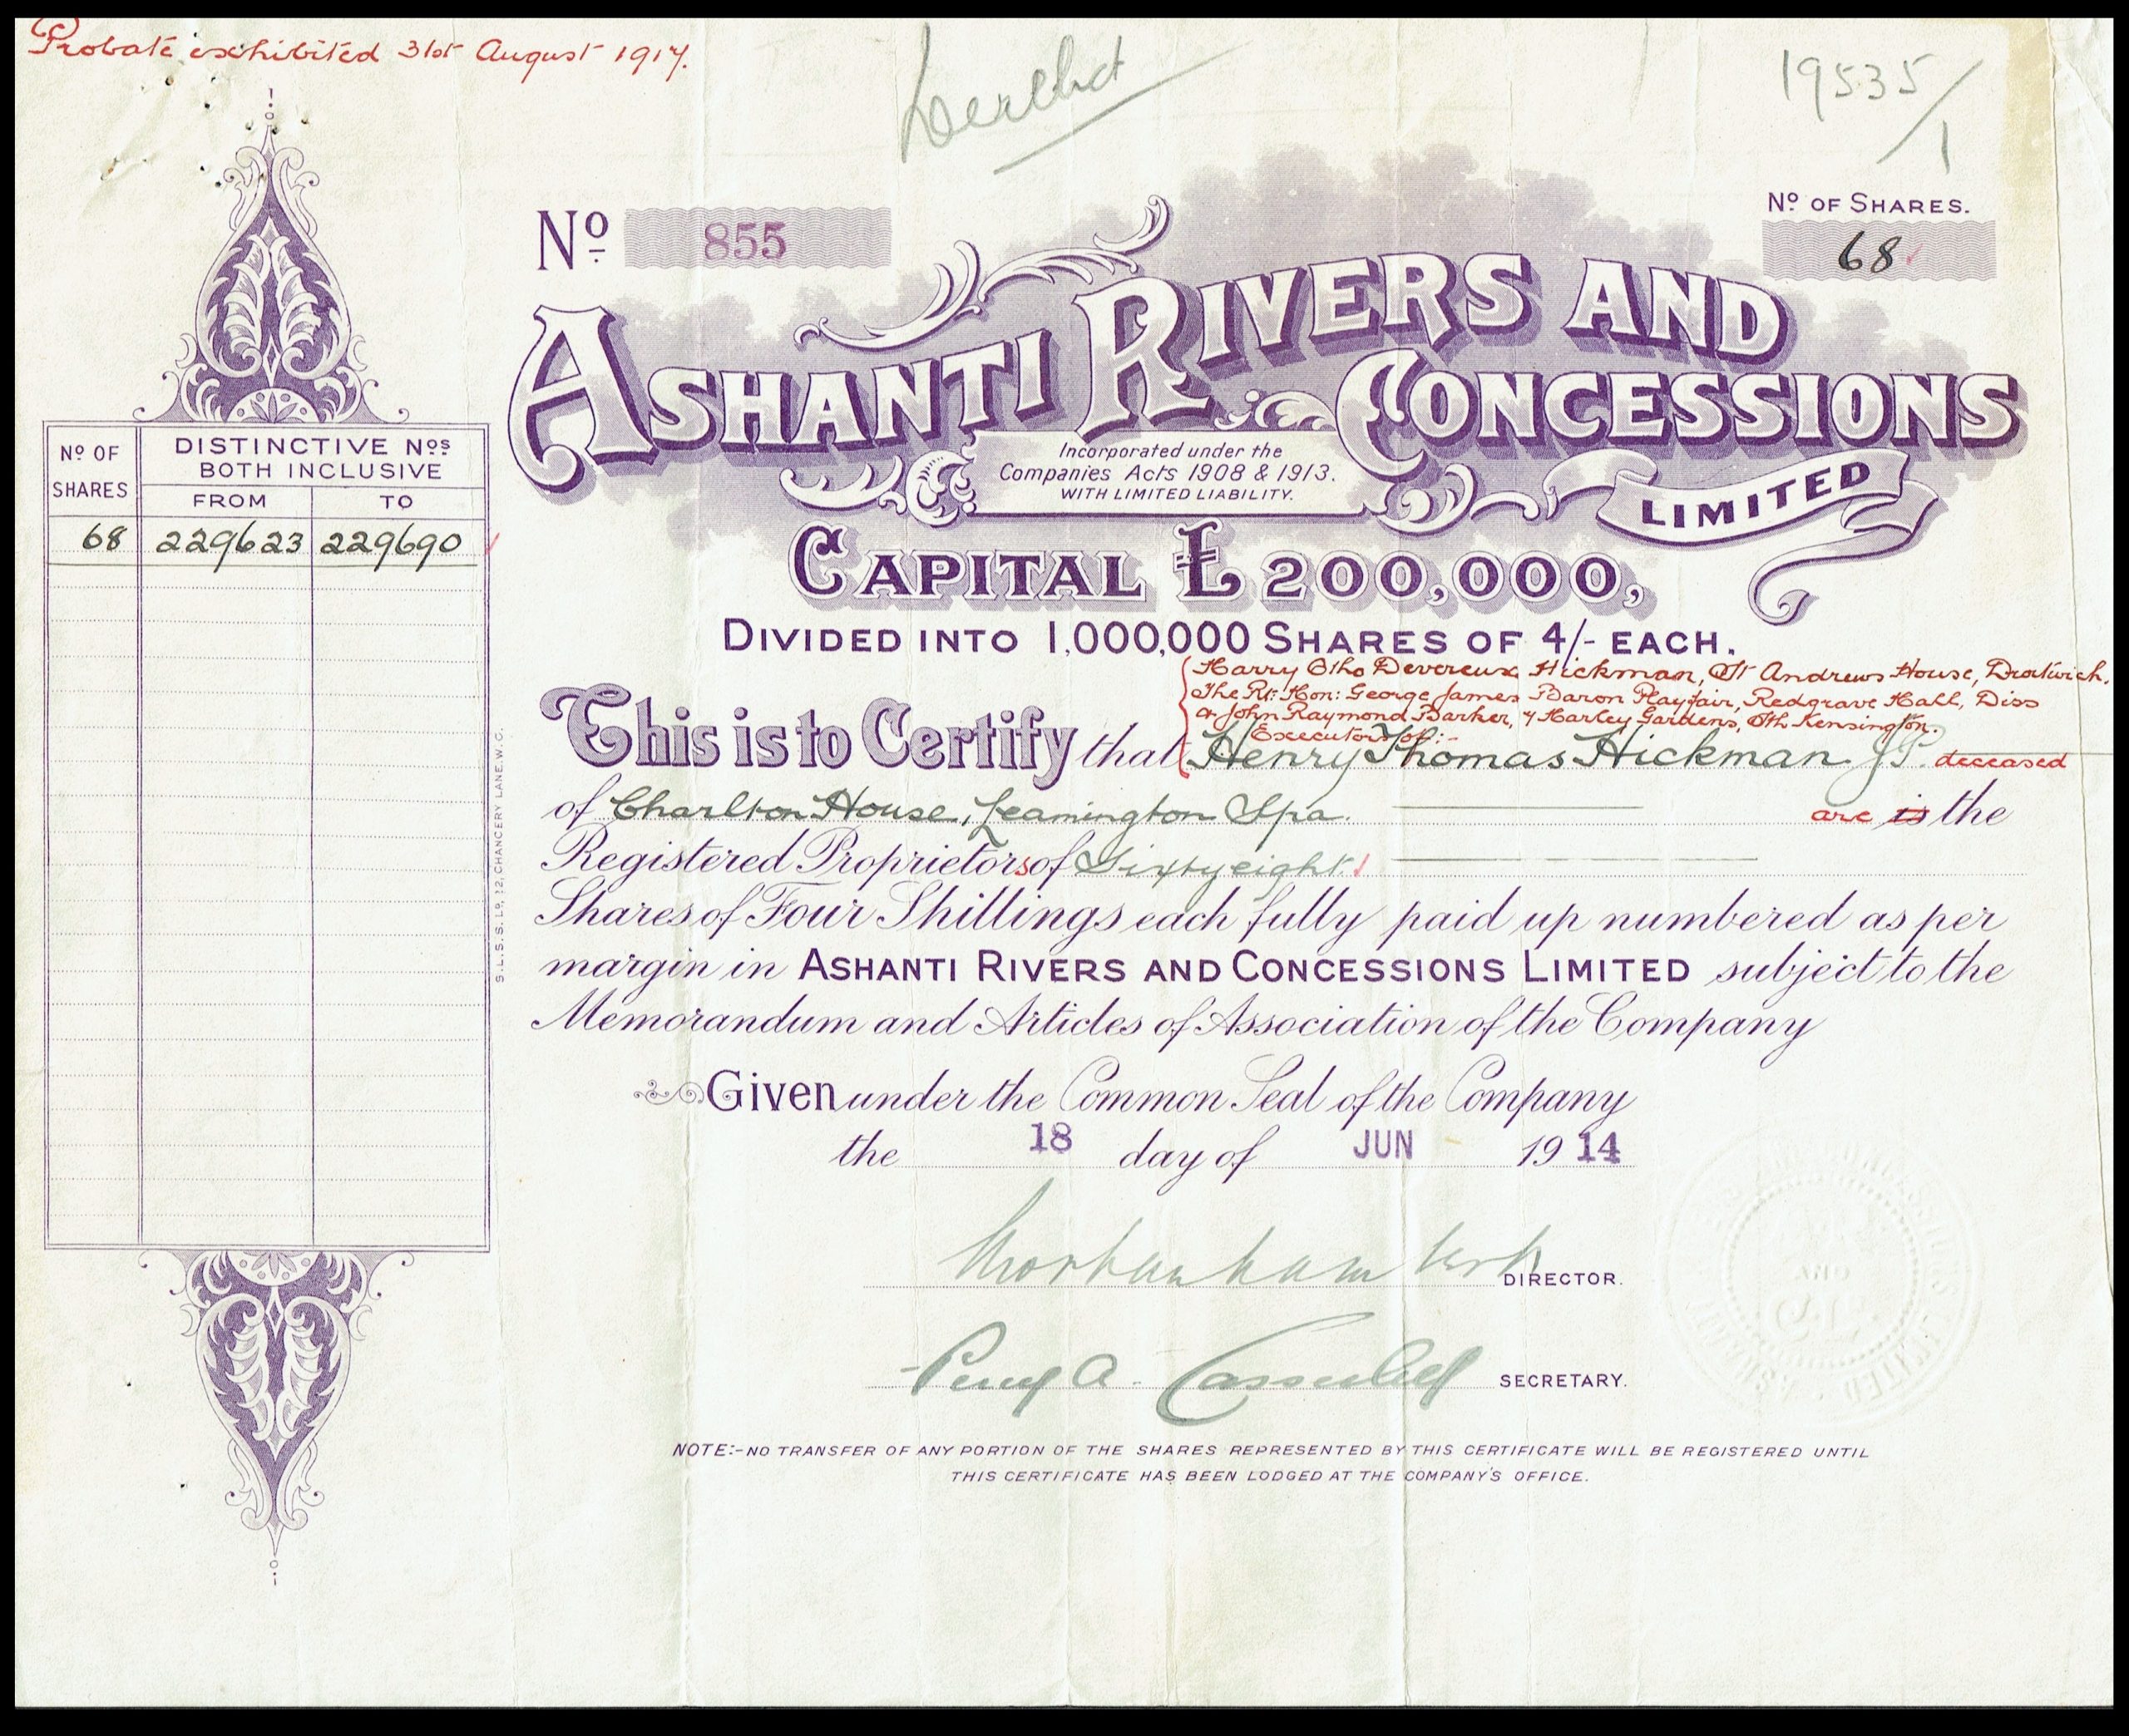 Probate exhibited 31st August 1917.
19535/1
Nº 855
Nº OF SHARES.
68
ASHANTI RIVERS AND
CONCESSIONS
LIMITED
Incorporated under the
Companies Acts 1908 & 1913.
WITH LIMITED LIABILITY.
CAPITAL £200,000,
DIVIDED INTO 1,000,000 SHARES OF 4/- EACH.
Nº OF SHARES
DISTINCTIVE Nºs
BOTH INCLUSIVE
FROM TO
68 229623 229690
S.L.S.S. Lº, 12, CHANCERY LANE, W.C.
Harry Otho Devereux Hickman, St Andrews House, Droitwich.
The Rt: Hon: George James Baron Playfair, Redgrave Hall, Diss
& John Raymond Barker, 7 Harley Gardens, Sth Kensington.
Executors of:-
This is to Certify that Henry Thomas Hickman J.P. deceased
of Charlton House, Leamington Spa. are is the
Registered Proprietors of Sixty eight
Shares of Four Shillings each fully paid up numbered as per
margin in ASHANTI RIVERS AND CONCESSIONS LIMITED subject to the
Memorandum and Articles of Association of the Company
Given under the Common Seal of the Company
the 18 day of JUN 1914
DIRECTOR.
Percy A.
SECRETARY.
NOTE:-NO TRANSFER OF ANY PORTION OF THE SHARES REPRESENTED BY THIS CERTIFICATE WILL BE REGISTERED UNTIL
THIS CERTIFICATE HAS BEEN LODGED AT THE COMPANY'S OFFICE.